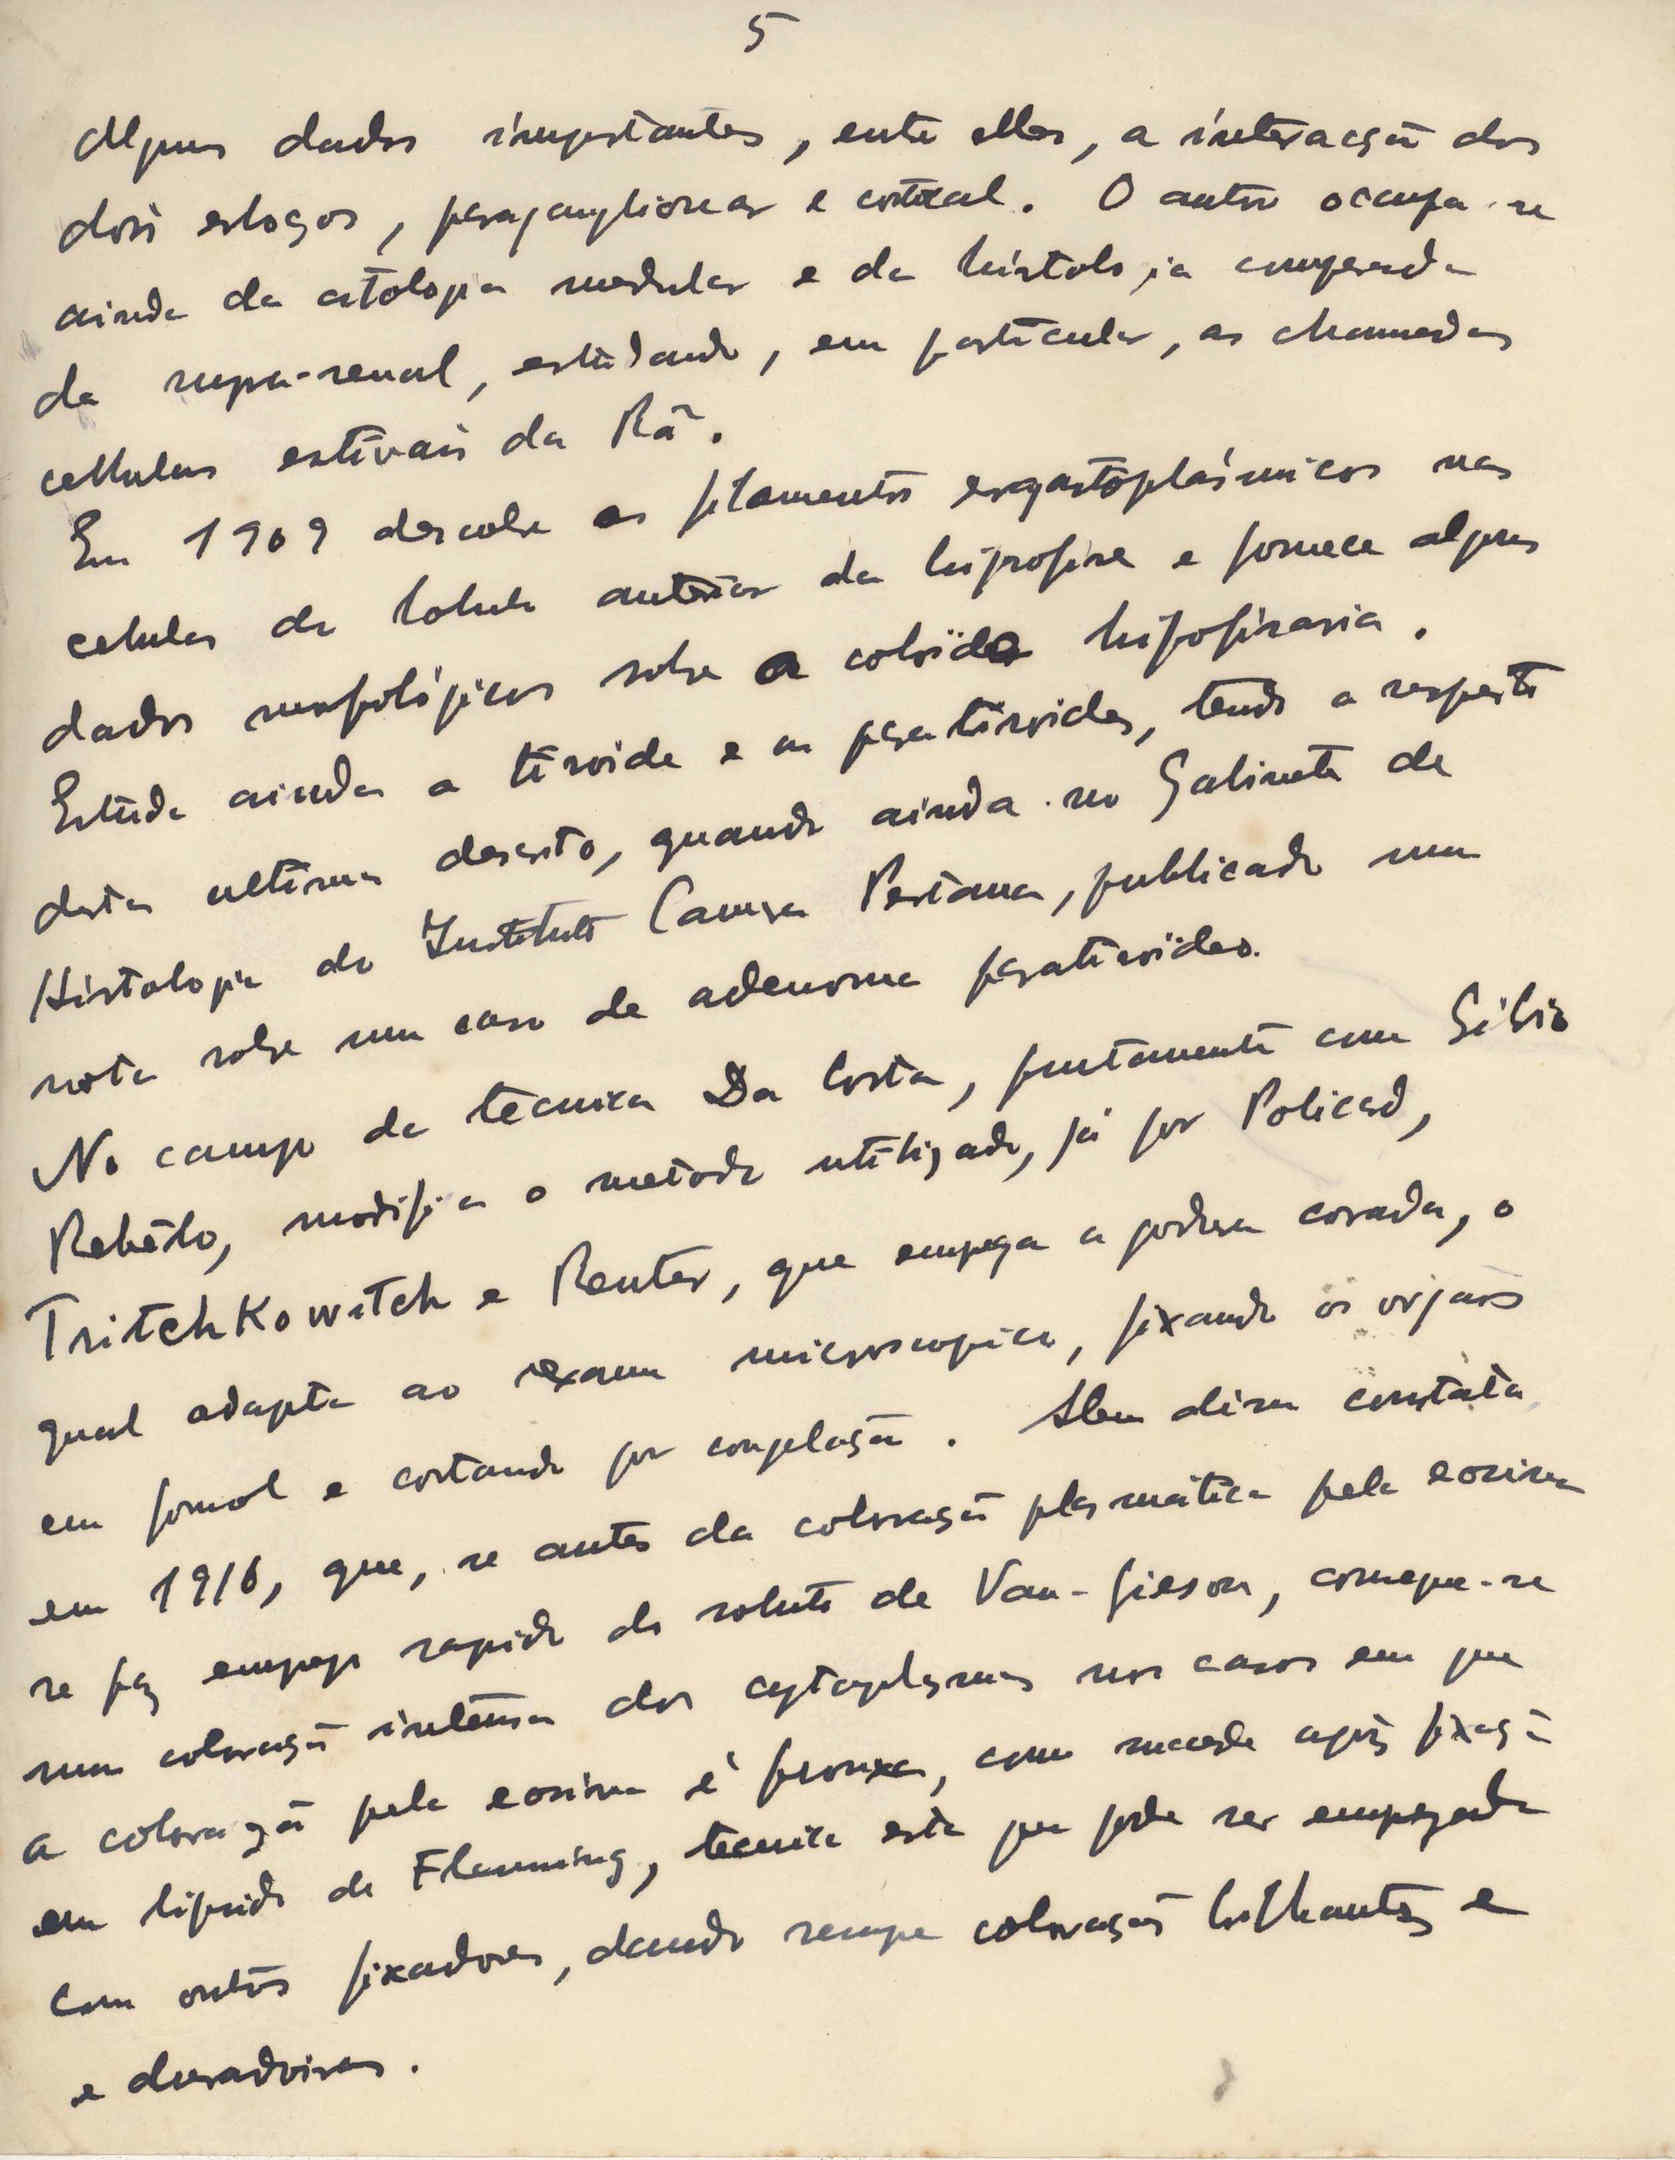 5
alguns dados importantes, entre elles, a interacção dos
dois esboços, paraganglionar e cortical. O autor occupa-se
ainda da citologia medular e da histologia comparada
da supra-renal, estudando, em particular, as chamadas
cellulas estivais da Rã.
Em 1909 descobre os filamentos ergastoplásmicos nas
celulas do lobulo anterior da hipofise e fornece alguns
dados morfológicos sobre a coloide hipofisaria.
Estuda ainda a tiroide e as paratiroides, tendo a respeito
desta ultima descrito, quando ainda no Gabinete de
Histologia do Instituto Camara Pestana, publicado uma
nota sobre um caso de adenoma paratiroideo.
No campo da tecnica Da Costa, juntamente com Silvio
Rebêlo, modifica o metodo utilizado, já por Policard,
TritchKowitch e Renter, que emprega a potassa corada, o
qual adapta ao exame microscopico, fixando os orgãos
em formol e cortando por congelação. Alem disso constata
em 1916, que, se antes da coloração plasmática pela eosina
se faz emprego rapido do soluto de Van-Gieson, consegue-se
uma coloração intensa dos cytoplasmas nos casos em que
a coloração pela eosina é frouxa, como sucede após fixação
em liquido de Flemming, tecnica esta que pode ser empregada
com outros fixadores, dando sempre colorações brilhantes e
e duradoiras.